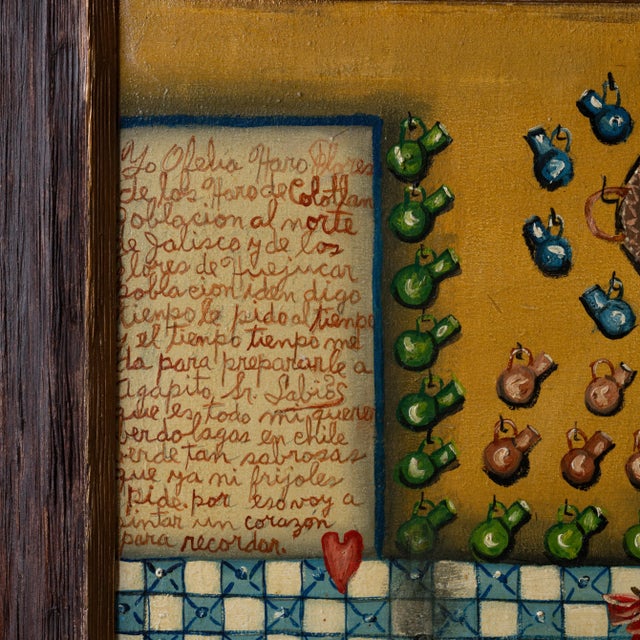 Yo Ofelia Haro Flores
de los Haro de Colotlan
poblacion al norte
de Jalisco y de los
Flores de Huejucar
poblacion iden digo
tienpo le pido al tienpo
y el tienpo tienpo me
da para prepararle a
Agapito Sr. Labios
que es todo mi querer
verdolagas en chile
verde tan sabrosas
que ya ni frijoles
pide por eso voy a
pintar un corazón
para recordar.